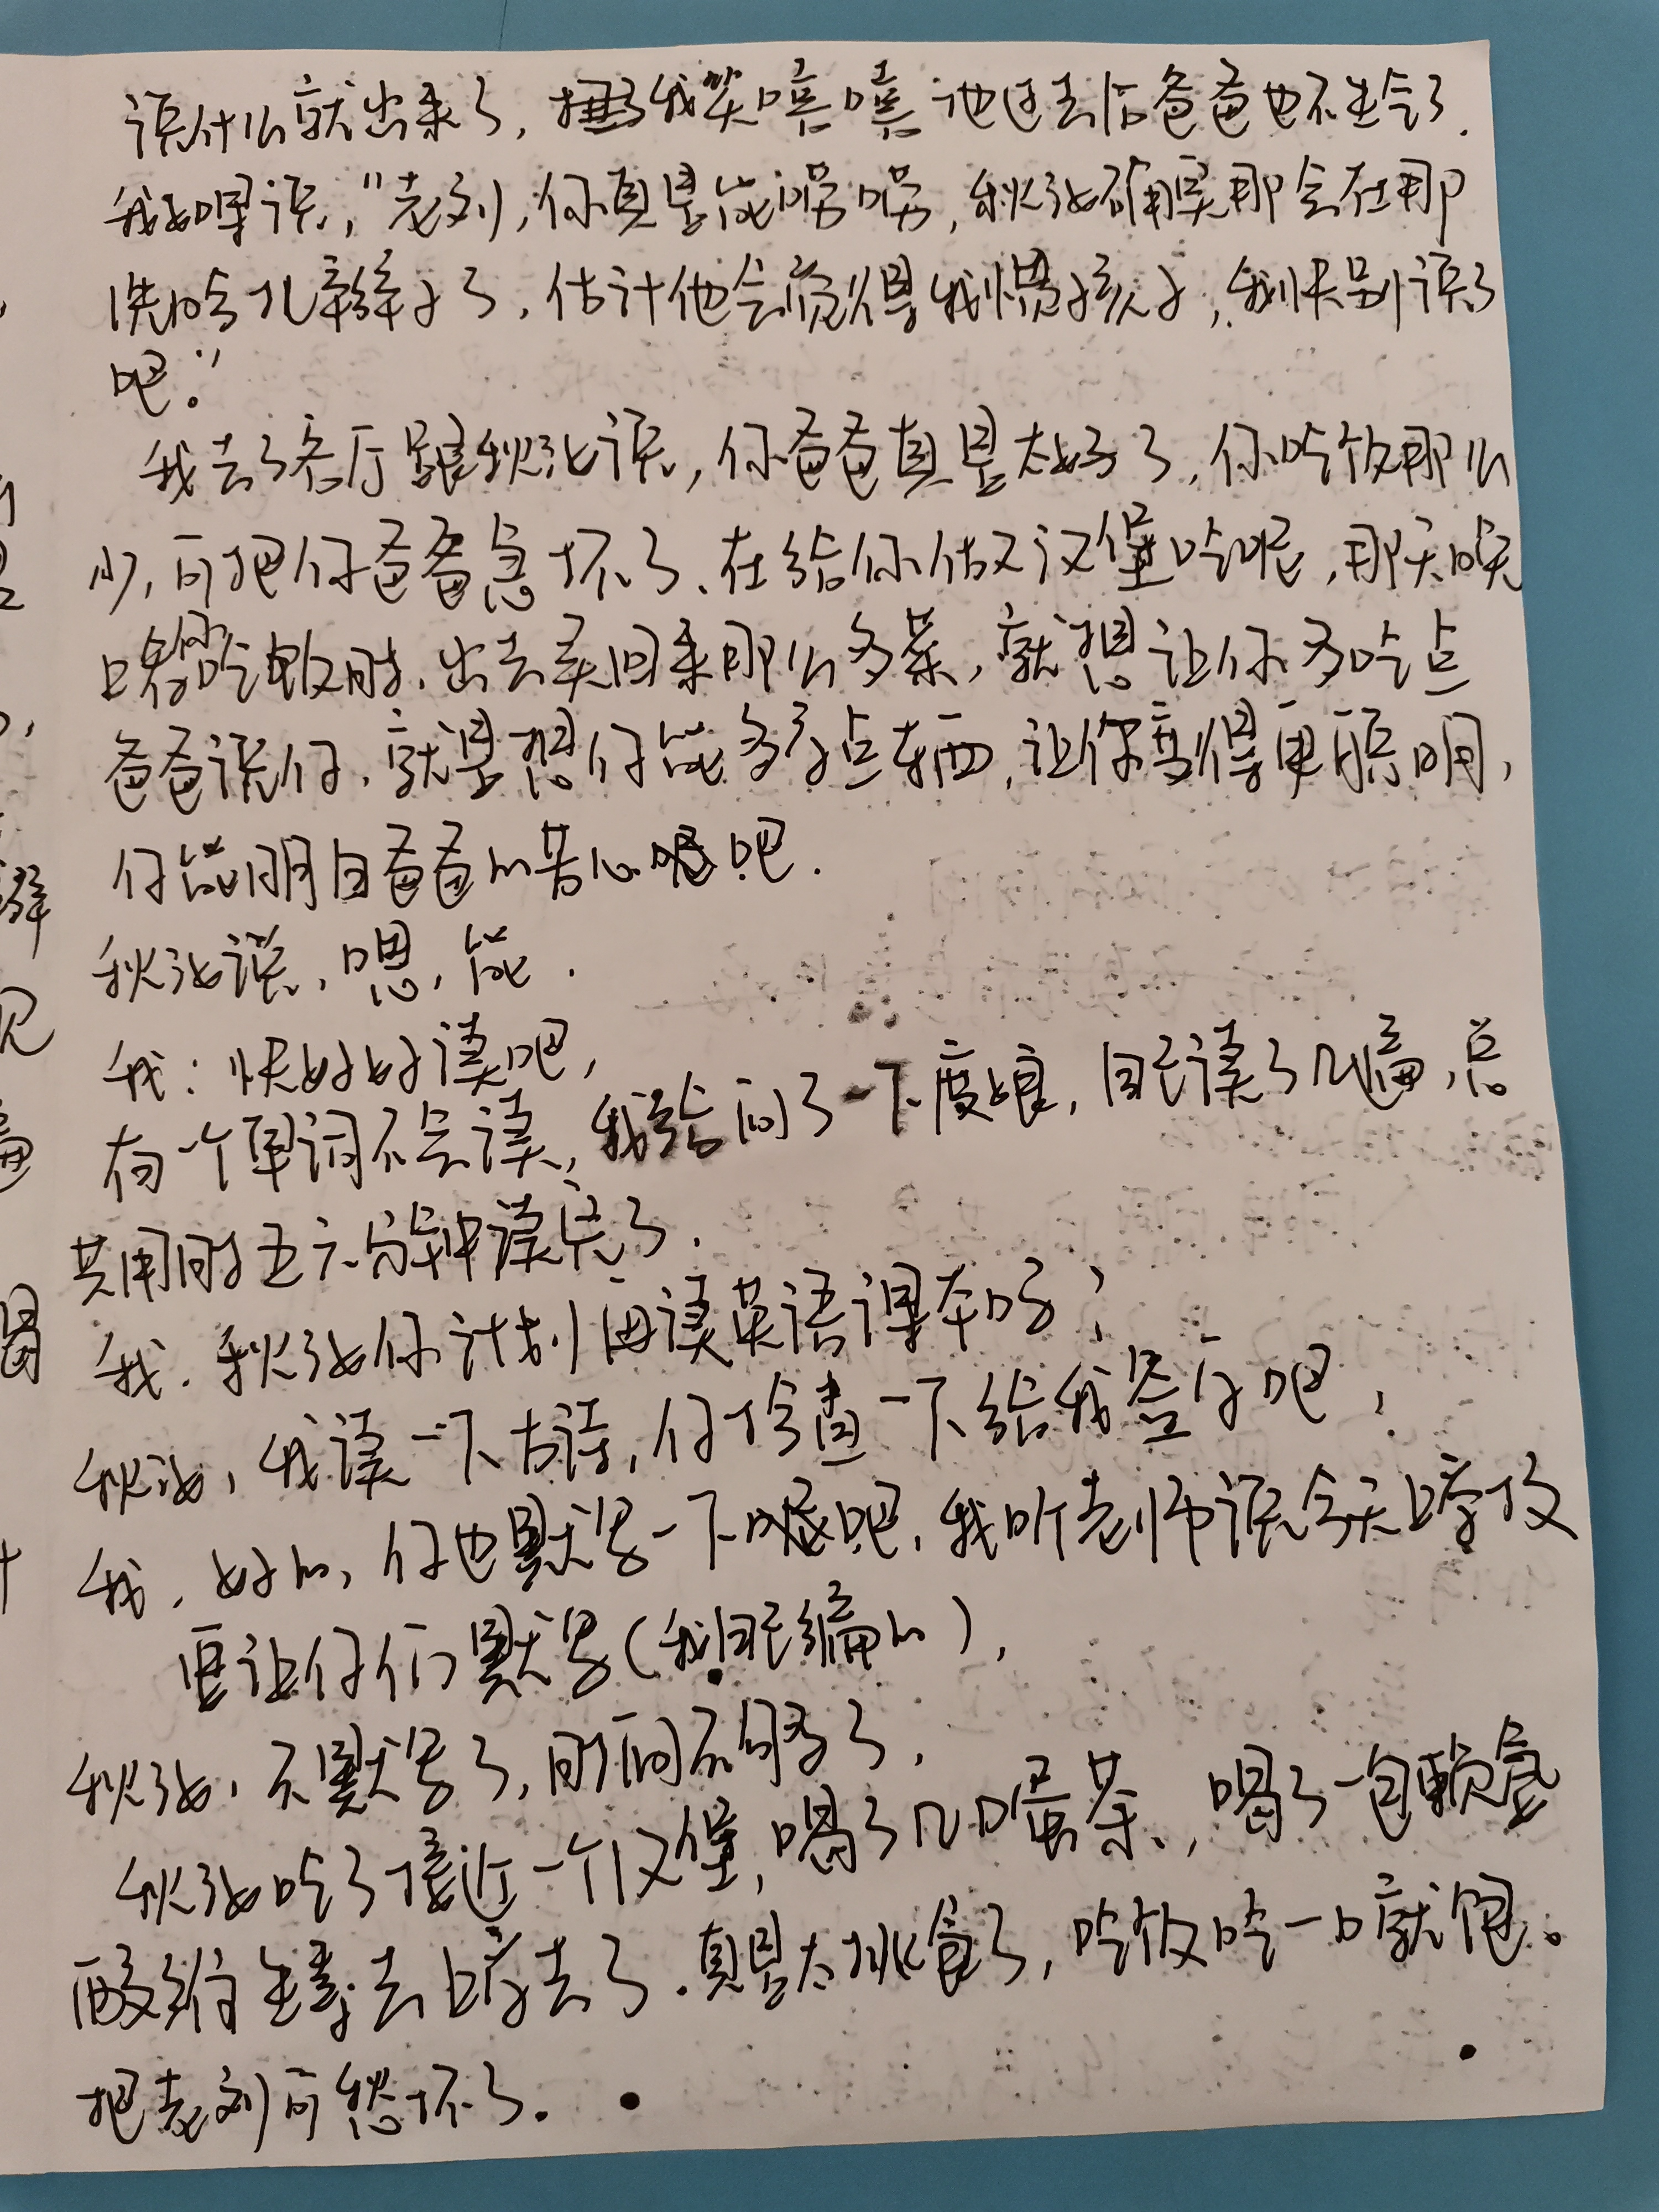 说什么就出来了，撞了我笑嘻嘻地过去后爸爸也不生气了.
我如果说，"老刘，你真是能唠唠，秋泓确实那会在那
洗哈儿辫子了，估计他会觉得我惯孩子，我快别说了
吧."
我去了客厅跟秋泓说，你爸爸真是太好了，你吃饭那么
少，可把你爸爸急坏了、在给你做汉堡吃呢，那天晚
上等你吃饭时、出去买回来那么多菜，就想让你多吃点
爸爸说你、就是想你能多学点东西，让你变得更聪明，
你能明白爸爸的苦心吧.
秋泓说，嗯，能.
我：快好好读吧，
有一个单词不会读，我给问了一下度娘，自己读了几遍，总
共用时五六分钟读完了.
我.秋泓你计划再读英语课本吗？
秋泓，我读一下古诗，你检查一下给我签字吧，
我，好的，你也默写一下吧，我听老师说今天上学校
要让你们默写（我自己编的），
秋泓，不默写了，时间不够了，
秋泓吃了接近一个汉堡，喝了几口蛋茶，喝了一包
酸奶 去上学去了.真是太挑食了，吃饭吃一口就饱。
把老刘可愁坏了.